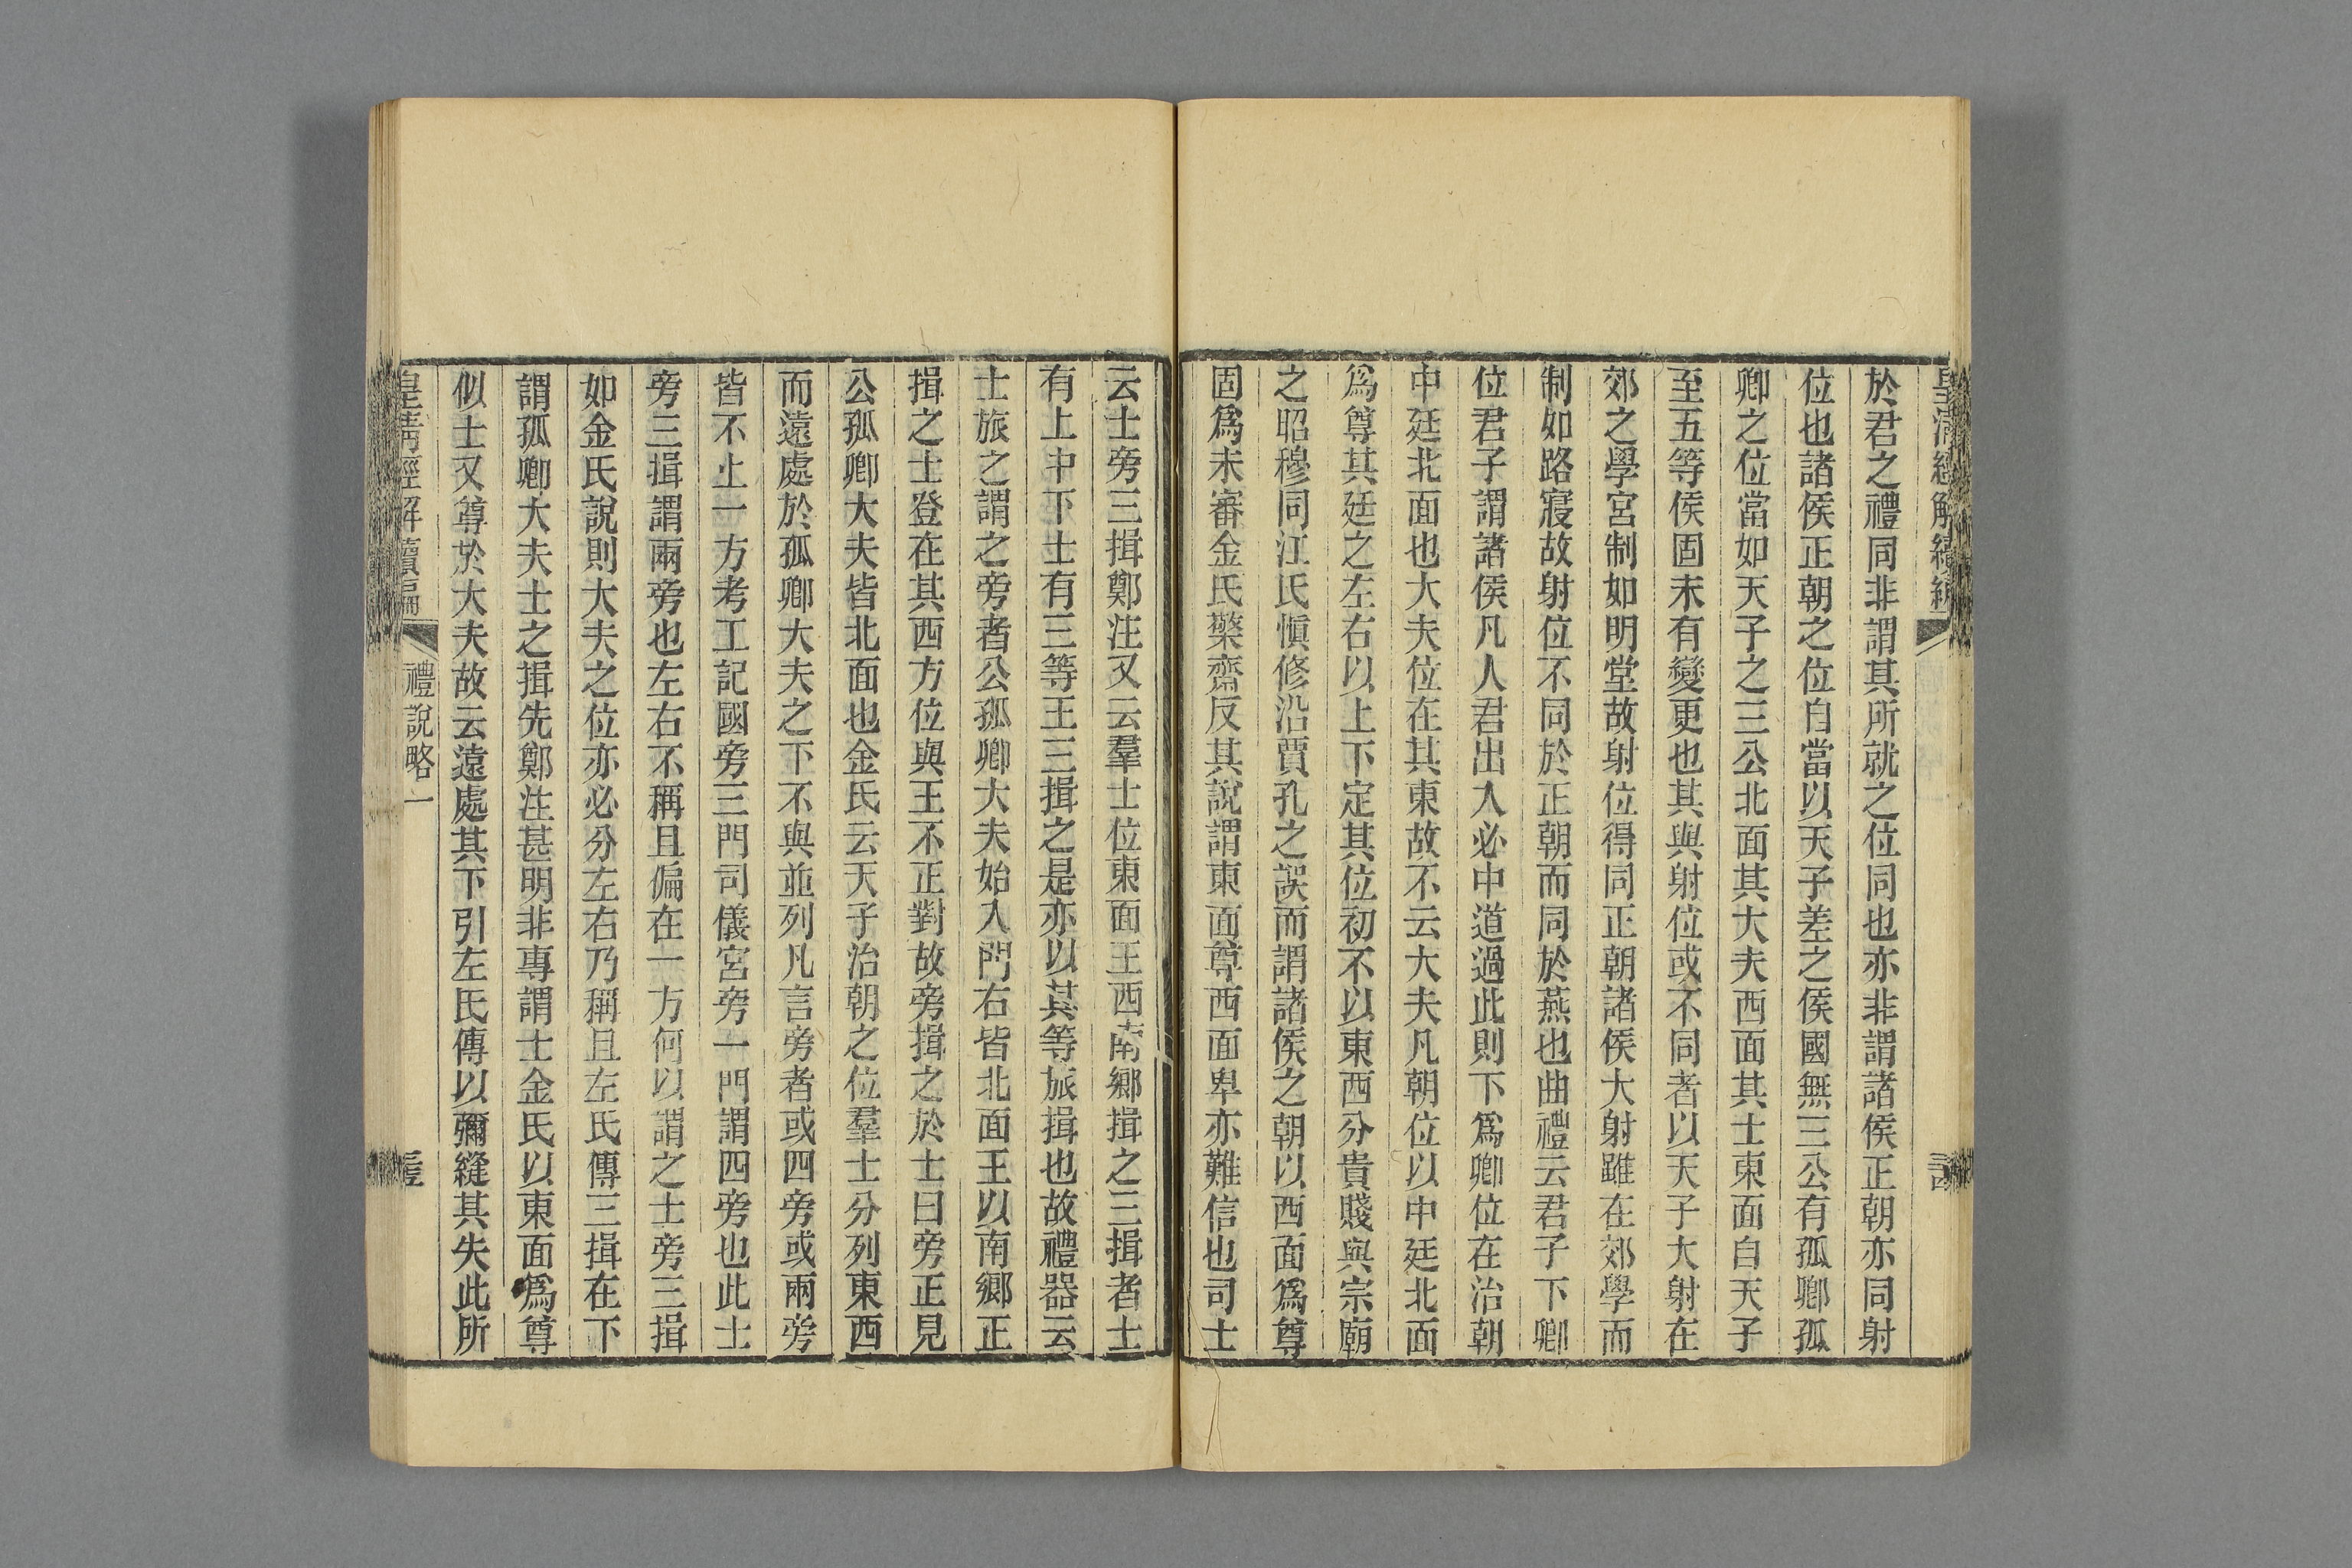 皇清經解續編
於君之禮同非謂其所就之位同也亦非謂諸侯正朝亦同射
位也諸侯正朝之位自當以天子差之侯國無三公有孤卿孤
卿之位當如天子之三公北面其大夫西面其士東面自天子
至五等侯固未有變更也其與射位或不同者以天子大射在
郊之學宮制如明堂故射位得同正朝諸侯大射雖在郊學而
制如路寢故射位不同於正朝而同於燕也曲禮云君子下卿
位君子謂諸侯凡人君出入必中道過此則下爲卿位在治朝
中廷北面也大夫位在其東故不云大夫凡朝位以中廷北面
爲尊其廷之左右以上下定其位初不以東西分貴賤與宗廟
之昭穆同江氏愼修沿賈孔之誤而謂諸侯之朝以西面爲尊
固爲未審金氏檠齋反其說謂東面尊西面卑亦難信也司士
云士旁三揖鄭注又云羣士位東面王西南鄉揖之三揖者士
有上中下士有三等王三揖之是亦以其等旅揖也故禮器云
士旅之謂之旁者公孤卿大夫始入門右皆北面王以南鄉正
揖之士登在其西方位與王不正對故旁揖之於士曰旁正見
公孤卿大夫皆北面也金氏云天子治朝之位羣士分列東西
而遠處於孤卿大夫之下不與並列凡言旁者或四旁或兩旁
皆不止一方考工記國旁三門司儀宮旁一門謂四旁也此士
旁三揖謂兩旁也左右不稱且偏在一方何以謂之士旁三揖
如金氏說則大夫之位亦必分左右乃稱且左氏傳三揖在下
謂孤卿大夫士之揖先鄭注甚明非專謂士金氏以東面爲尊
似士又尊於大夫故云遠處其下引左氏傳以彌縫其失此所
皇清經解續編
禮說略一